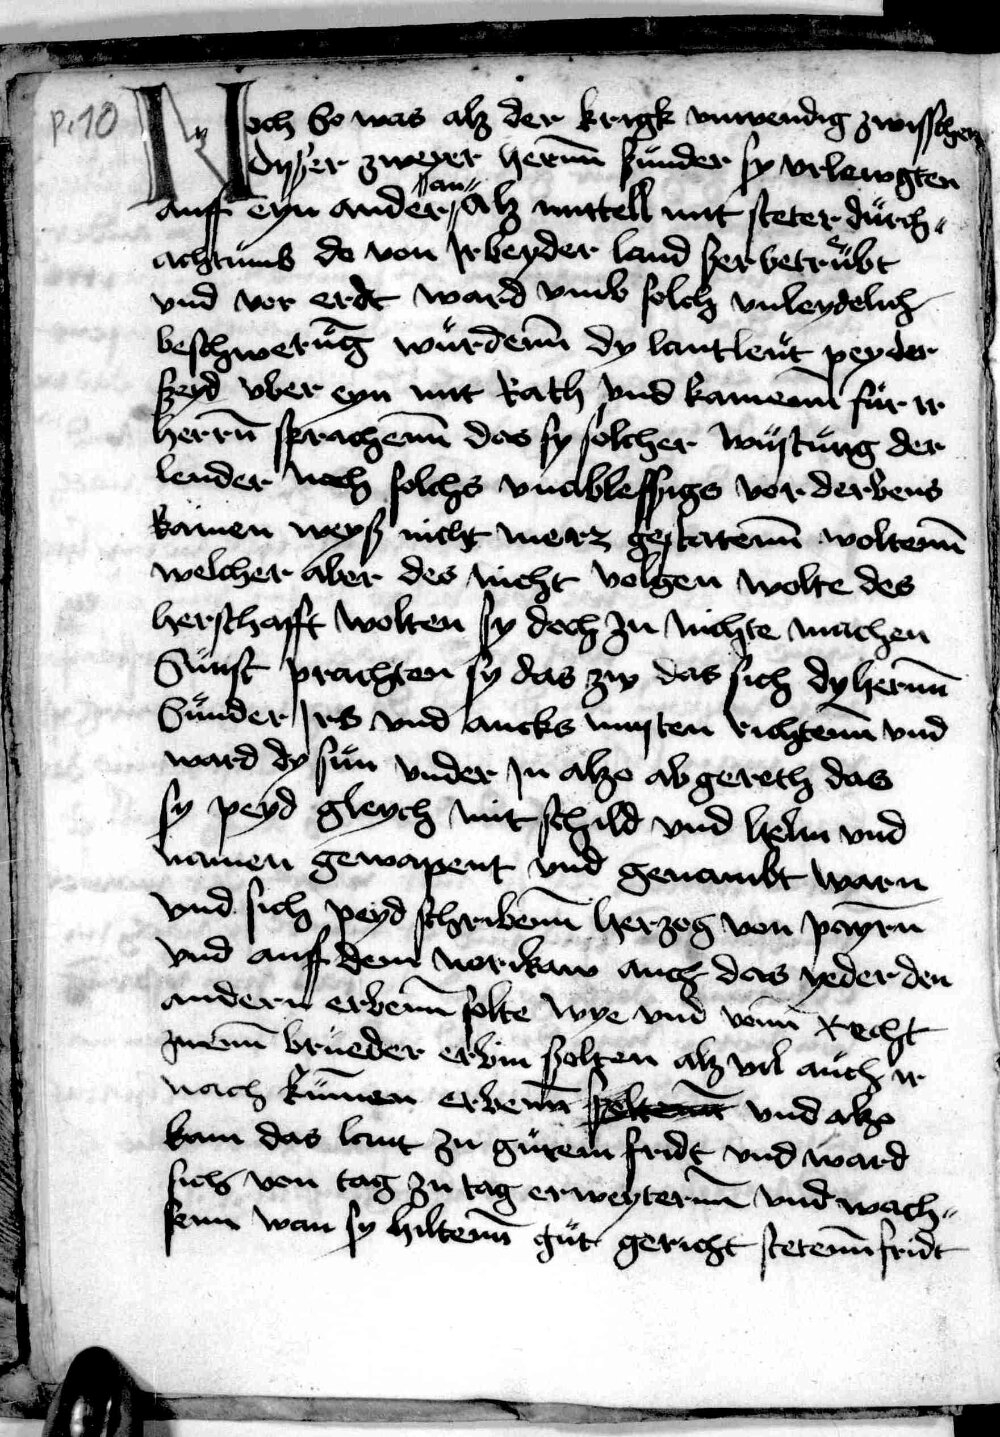 p. 10
Noch So was alz der krigk unwendig zwisschen
dysser zweyer hernn sunder sy urlewgten
auff eyn ander an alz mittell mit steter dürch„
achtumb do von Jr beyder land ser betrübt
vnd vor erdt ward vmb solch vnleydelich
beschwerung würdenn dy lantleut peyder
seyd vber eyn mit Rath vnd kamenn für ir
herrn sprachenn das sy solcher wüstung der
lender noch solchs vnablessigs vorderbens
kainen weyß nicht merz gestatenn woltenn
welcher aber des nicht volgen wolte des
herschafft wolten sy doch zu nichte machen
Sunst prachten sy das zw das sich dy hernn
Sunder Jrs vnd ancks musten richtenn vnd
ward dy sün vnder Jn alzo abgereth das
sy peyd gleych mit schild vnd helm vnd
namen gewapent vnd genambt warn
vnd sich peyd schribenn herzog von payrn
vnd auff dem norikaw auch das yeder den
andern erbenn solte wye vnd vonn Recht
zwenn brueder erbin solten alz vil auch ir
nach kumen erbenn soltenn vnd alzo
kam das lant zu gutem fridt vnd ward
sich von tag zu tag erweyternn vnd wach„
senn wan sy hiltenn güt gericht stetenn fridt